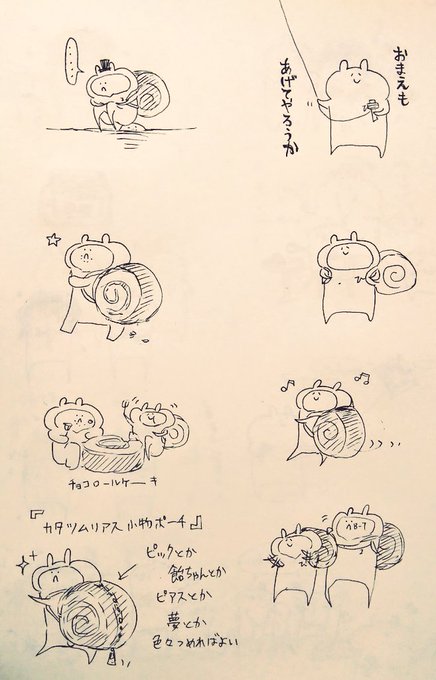 おまえも
あげてやろうか
チョコロールケーキ
『カタツムリアス小物ポーチ』
ピックとか
飴ちゃんとか
ピアスとか
夢とか
色々つめればよい